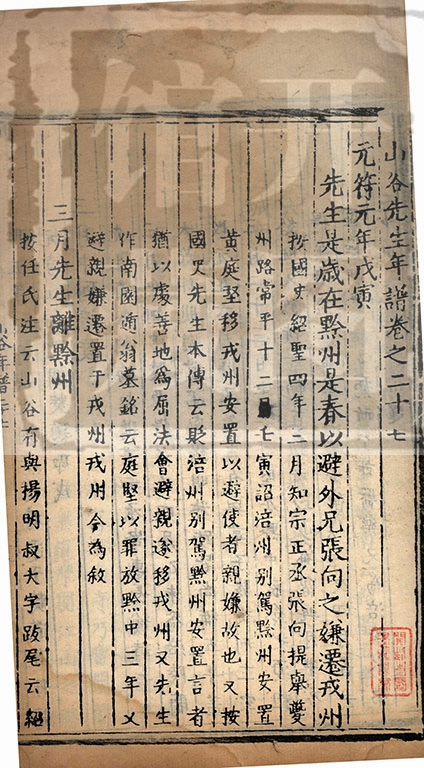 山谷先生年譜卷之二十七
元符元年戊寅
先生是歲在黔州是春以避外兄張向之嫌遷戎州
按國史紹聖四年三月知宗正丞張向提舉夔
州路常平十二月壬寅詔涪州別駕黔州安置
黃庭堅移戎州安置以避使者親嫌故也又按
國史先生本傳云貶涪州別駕黔州安置言者
猶以處善地為屈法會避親遂移戎州又先生
作南園遁翁墓銘云庭堅以罪放黔中三年又
避親嫌遷置于戎州戎用今為敘
三月先生離黔州
按任氏注云山谷有與揚明叔大字跋尾云紹
山谷年譜